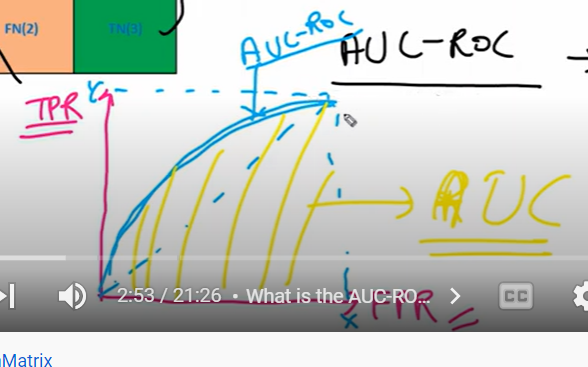 FN(2) TN(3)
AUC-ROC
AUC-ROC
TPR
AUC
2:53 / 21:26 • What is the AUC-RO...
CC
FPR
nMatrix